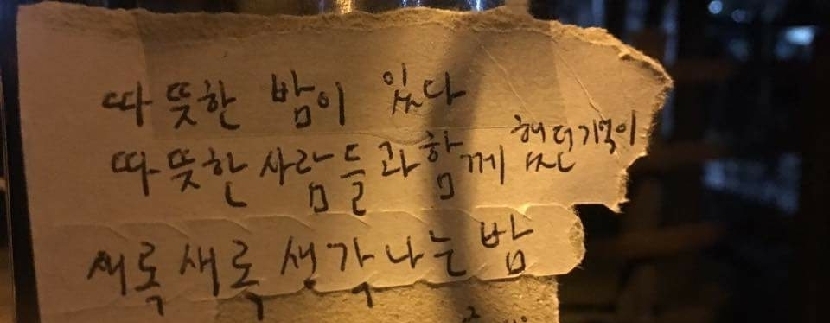 따뜻한 밤이 있다
따뜻한 사람들과 함께 했던 기억이
새록새록 생각나는 밤